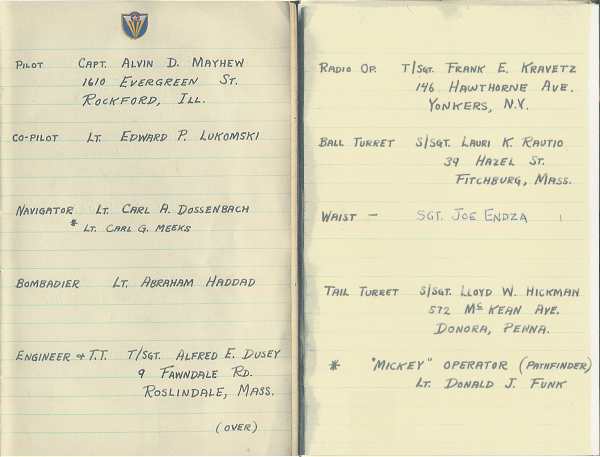 PILOT CAPT. ALVIN D. MAYHEW
1610 EVERGREEN ST.
ROCKFORD, ILL.
CO-PILOT LT. EDWARD P. LUKOMSKI
NAVIGATOR LT. CARL A. DOSSENBACH
* LT. CARL G. MEEKS
BOMBADIER LT. ABRAHAM HADDAD
ENGINEER & T.T. T/SGT. ALFRED E. DUSEY
9 FAWNDALE RD.
ROSLINDALE, MASS.
(OVER)
RADIO OP. T/SGT. FRANK E. KRAVETZ
146 HAWTHORNE AVE.
YONKERS, N.Y.
BALL TURRET S/SGT. LAURI K. RAUTIO
39 HAZEL ST.
FITCHBURG, MASS.
WAIST – SGT. JOE ENDZA
TAIL TURRET S/SGT. LLOYD W. HICKMAN
572 McKEAN AVE.
DONORA, PENNA.
* "MICKEY" OPERATOR (PATHFINDER)
LT. DONALD J. FUNK